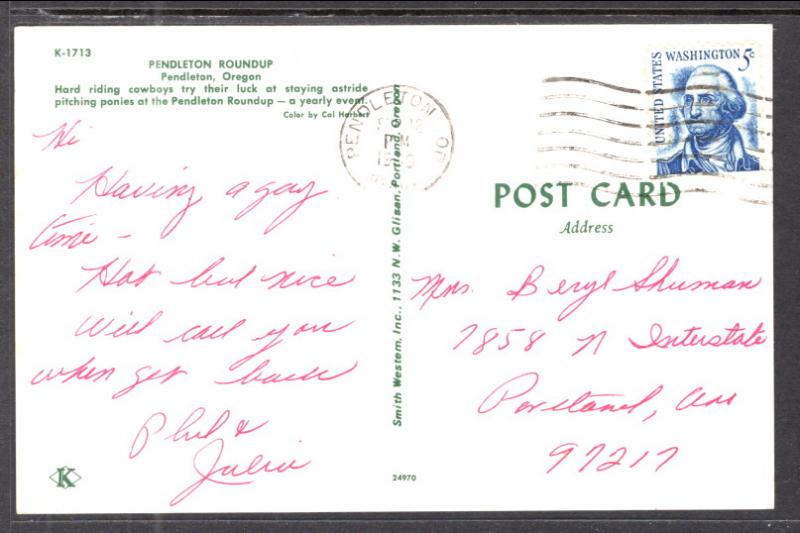 K-1713
PENDLETON ROUNDUP
Pendleton, Oregon
Hard riding cowboys try their luck at staying astride
pitching ponies at the Pendleton Roundup — a yearly event.
Color by Cal Harbert
Hi
Having a gay
time —
Hot but nice
Will call you
when get back
Phil &
Julia
K
Smith Western, Inc., 1133 N.W. Glisan, Portland, Oregon
24970
PENDLETON OR
PM
UNITED STATES
WASHINGTON 5c
POST CARD
Address
Mrs. Beryl Shuman
7858 N Interstate
Portland, Ore
97217